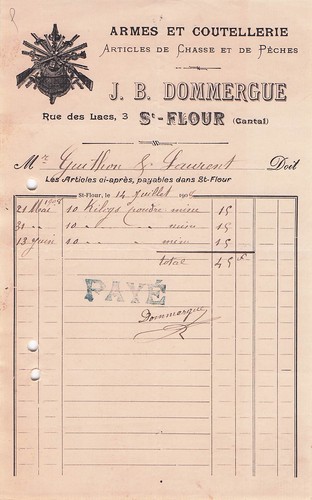 ARMES ET COUTELLERIE
ARTICLES DE CHASSE ET DE PÊCHES
J. B. DOMMERGUE
Rue des Lacs, 3 St-FLOUR (Cantal)
Mr Guilhon & Laurent Doit
Les Articles ci-après, payables dans St-Flour
St-Flour, le 14 Juillet 1908
21 Mai 1908 10 Kilogs poudre mine 15
31 " 10 " " mine 15
13 Juin 10 " " mine 15
total 45 f
PAYÉ
Dommergue